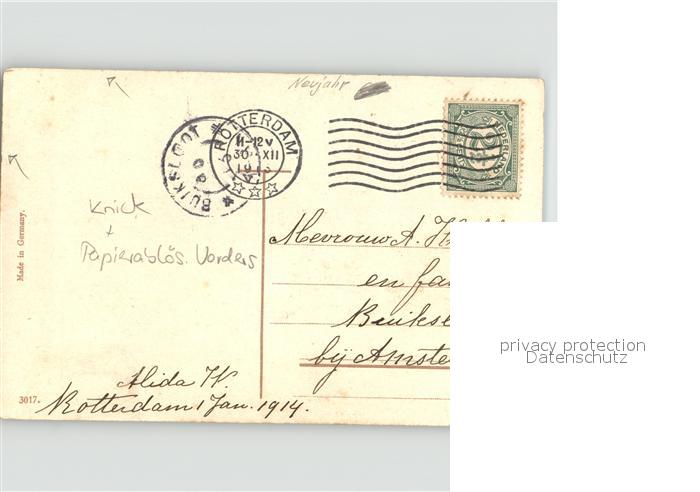 Neujahr
ROTTERDAM
11-12V
30 XII
BUIKSLOOT
NEDERLAND
2½
Made in Germany.
Knick
+
Papierablös. Vorders
Mevrouw A.
en fa
Buikse
bij Amste
privacy protection
Datenschutz
Alida W.
3017.
Rotterdam 1 Jan. 1914.